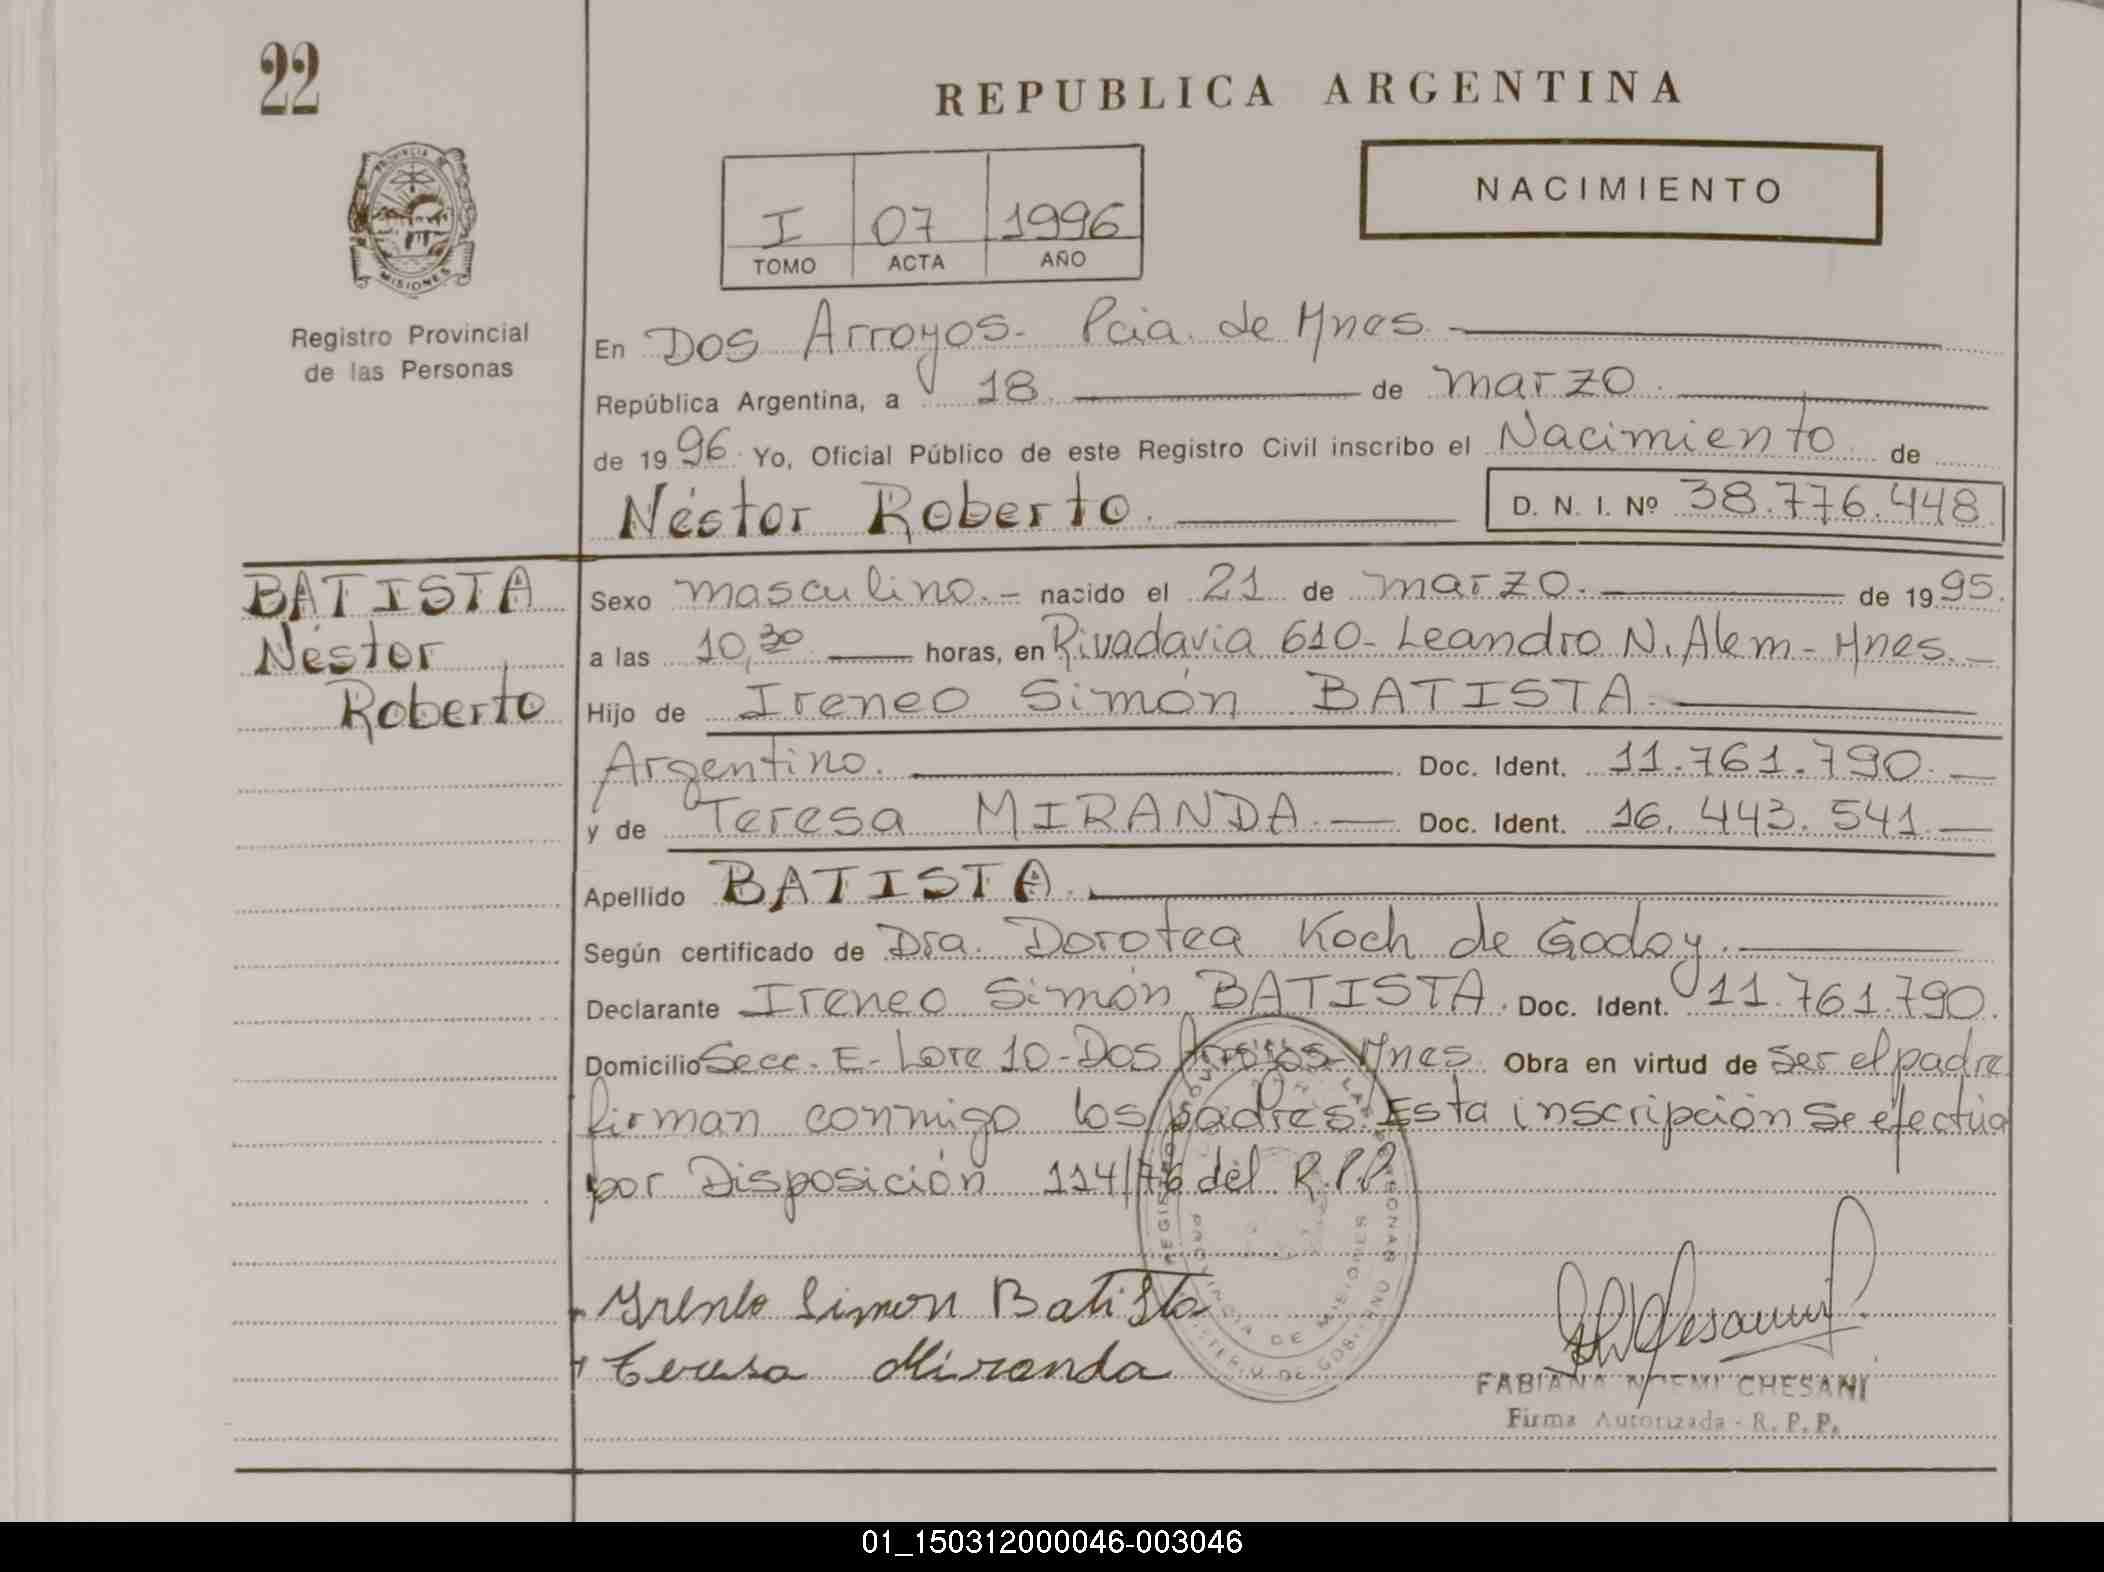 22
REPUBLICA ARGENTINA
PROVINCIA DE
MISIONES
Registro Provincial
de las Personas
NACIMIENTO
I 07 1996
TOMO ACTA AÑO
En Dos Arroyos- Pcia. de Mnes.
República Argentina, a 18 de marzo.
de 1996. Yo, Oficial Público de este Registro Civil inscribo el Nacimiento de
Néstor Roberto. D. N. I. Nº 38.776.448
BATISTA
Néstor
Roberto
Sexo masculino.- nacido el 21 de marzo. de 1995.
a las 10,30 horas, en Rivadavia 610- Leandro N. Alem- Mnes.-
Hijo de Ireneo Simón BATISTA.
Argentino. Doc. Ident. 11.761.790.-
y de Teresa MIRANDA.- Doc. Ident. 16.443.541.-
Apellido BATISTA.
Según certificado de Dra. Dorotea Koch de Godoy.
Declarante Ireneo Simón BATISTA. Doc. Ident. 11.761.790.
Domicilio Secc. E- Lote 10- Dos Arroyos- Mnes. Obra en virtud de ser el padre
firman conmigo los padres. Esta inscripción se efectúa
por Disposición 114/76 del R.P.P.
PROVINCIA DE MISIONES
Ireneo Simon Batista
Teresa Miranda
FABIANA NOEMI CHESANI
Firma Autorizada - R. P. P.
01_150312000046-003046